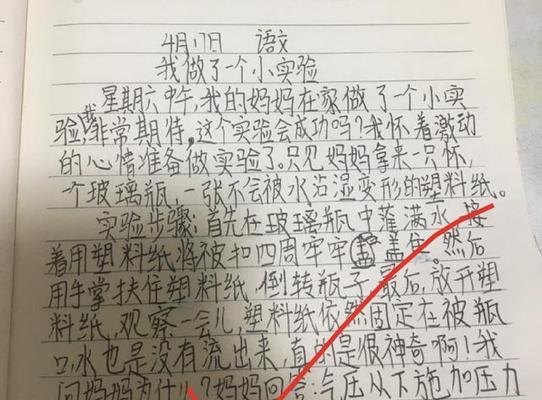 4月17日 语文
我做了一个小实验
星期六中午,我的妈妈在家做了一个小实
验,我非常期待,这个实验会成功吗?我怀着激动
的心情准备做实验了。只见妈妈拿来一只杯,
一个玻璃瓶,一张不会被水沾湿变形的塑料纸。
实验步骤:首先在玻璃瓶中灌满水,接
着用塑料纸将被扣四周牢牢盖住。然后
用手掌扶住塑料纸,倒转瓶子,最后,放开塑
料纸,观察一会儿,塑料纸依然固定在被瓶
口,水也是没有流出来,真的是很神奇啊!我
问妈妈为什么?妈妈回答:气压从下施加压力